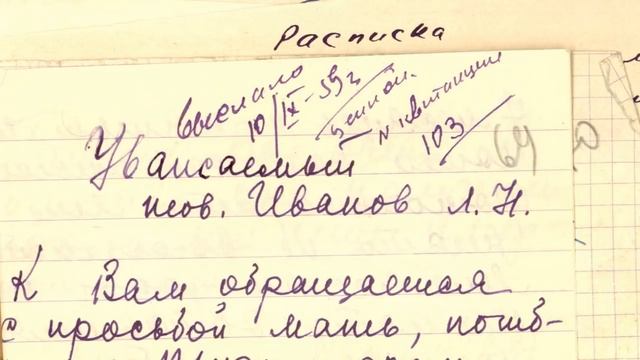 Расписка
выслало
10/IX-59г
ценной.
N квитанции
103
Уважаемый
тов. Иванов Л.Н.
К Вам обращается
с просьбой мать, погиб-